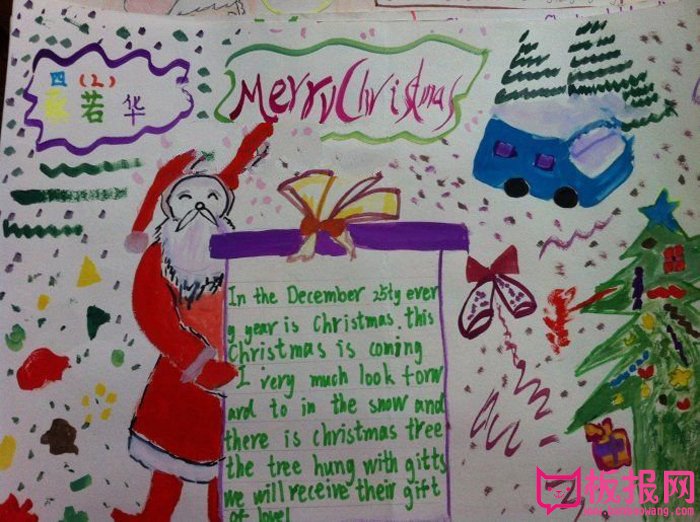 四(2)
若华
Merry Christmas
In the December 25ty ever
y year is Christmas. this
Christmas is coming
I very much look forw
ard to in the snow and
there is christmas tree
the tree hung with gitts
we will receive their gift
of love!
板报网